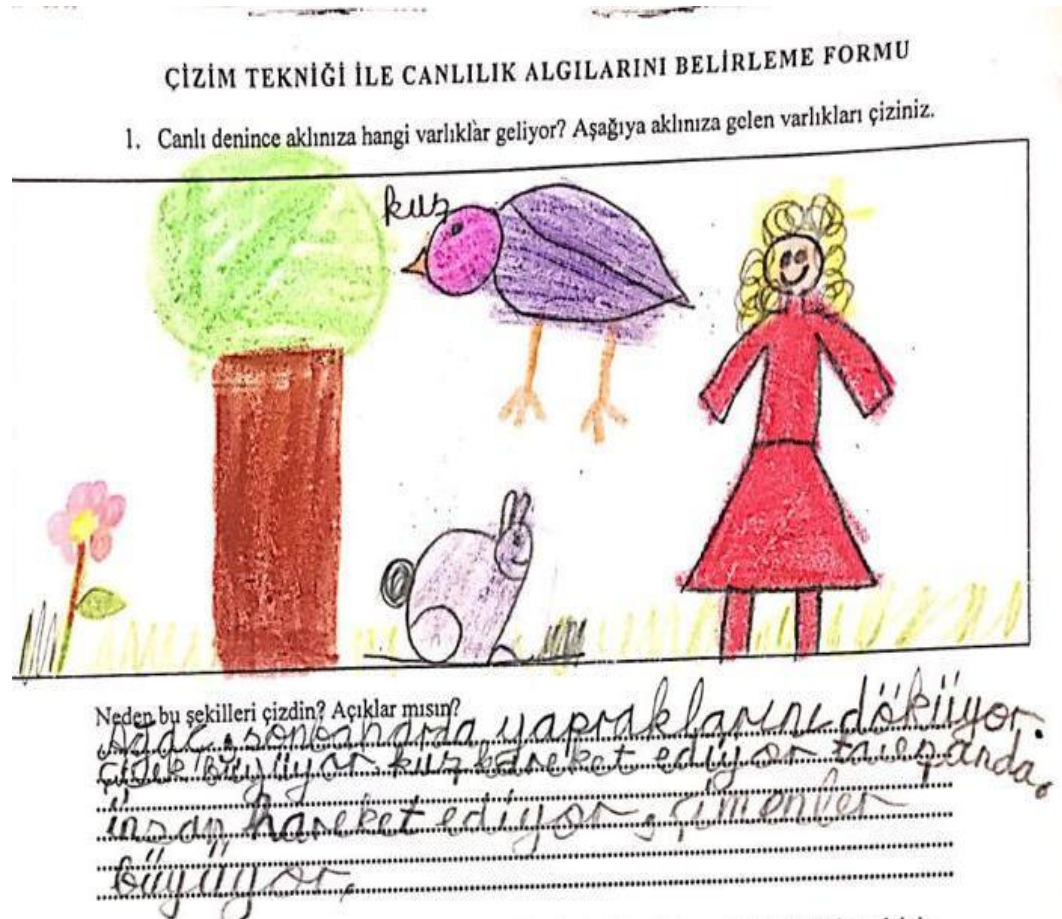 ÇİZİM TEKNİĞİ İLE CANLILIK ALGILARINI BELİRLEME FORMU
1. Canlı denince aklınıza hangi varlıklar geliyor? Aşağıya aklınıza gelen varlıkları çiziniz.
kuş
Neden bu şekilleri çizdin? Açıklar mısın?
Ağaç, sonbaharda yapraklarını döküyor.
çiçek büyüyor, kuş hareket ediyor tavşanda.
insan hareket ediyor, çimenler
büyüyor.